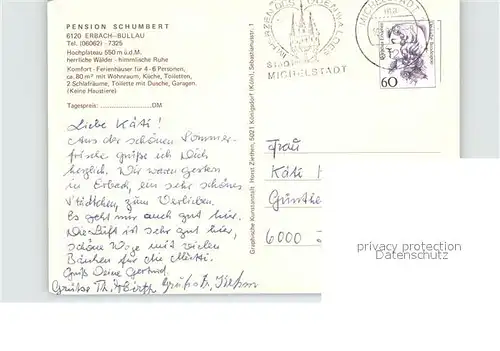 PENSION SCHUMBERT
6120 ERBACH-BULLAU
Tel. (06062) - 7325
Hochplateau 550 m ü.d.M.
herrliche Wälder - himmlische Ruhe
Komfort - Ferienhäuser für 4-6 Personen,
ca. 80 m² mit Wohnraum, Küche, Toiletten,
2 Schlafräume, Toilette mit Dusche, Garagen.
(Keine Haustiere)
Tagespreis: DM
Liebe Käti!
Aus der schönen Sommer-
frische grüße ich Dich
herzlich. Wir waren gestern
in Erbach, ein sehr schönes
Städtchen, zum Verlieben.
Es geht mir auch gut hier.
Die Luft ist sehr gut hier,
schöne Wege mit vielen
Bänken für die Mutti.
Gruß Deine Gertrud.
Grüße
Graphische Kunstanstalt Horst Ziethen, 5021 Königsdorf (Köln), Sebastianusstr. 1
IM HERZEN DES
MICHELSTADT
MICHELSTADT
60
Frau
Käti
Günthe
6000
privacy protection
Datenschutz